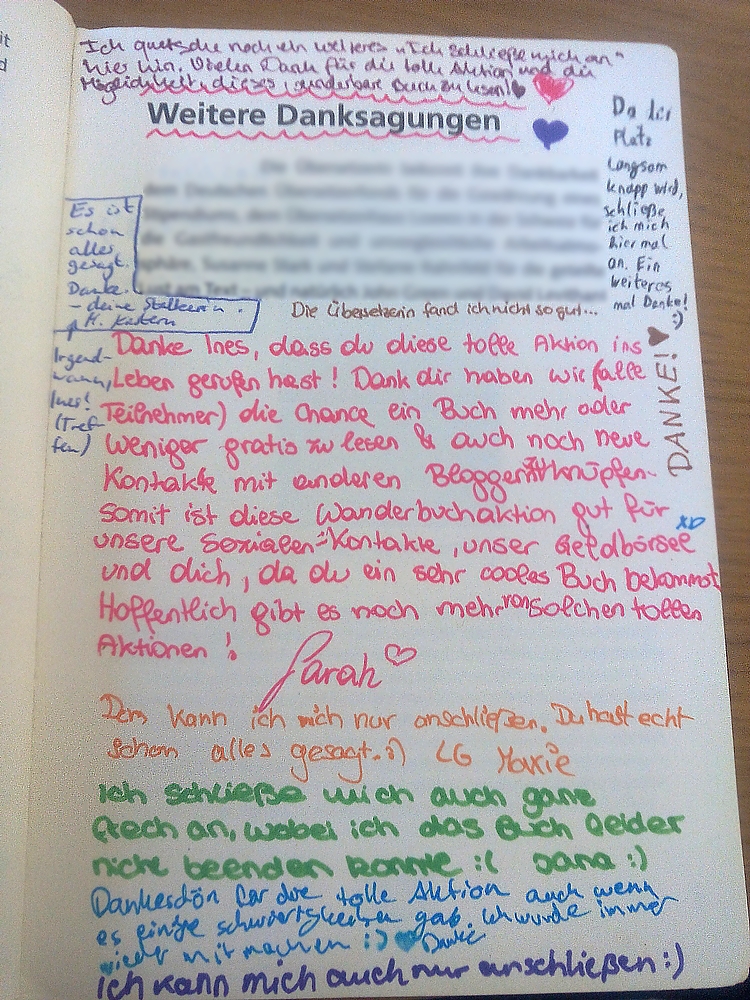 Ich quetsche noch ein weiteres "Ich schließe mich an"
hier hin. Vielen Dank für die tolle Aktion und die
Möglichkeit, dieses wunderbare Buch zu lesen!
Weitere Danksagungen
Da der
Platz
langsam
knapp wird,
schließe
ich mich
hier mal
an. Ein
weiteres
mal Danke!
:)
Es ist
schon
alles
gesagt.
Danke.
- deine Stalkerin.
Die Übersetzerin fand ich nicht so gut...
Irgend-
wann,
Ines!
(Tref-
fen)
DANKE!
Danke Ines, dass du diese tolle Aktion ins
Leben gerufen hast! Dank dir haben wir (alle
Teilnehmer) die Chance ein Buch mehr oder
weniger gratis zu lesen & auch noch neue
Kontakte mit anderen Bloggern knüpfen.
somit ist diese Wanderbuchaktion gut für
unsere sozialen Kontakte, unser Geldbörsel XD
und dich, da du ein sehr cooles Buch bekommst
Hoffentlich gibt es noch mehr von solchen tollen
Aktionen!
Sarah
Dem kann ich mich nur anschließen. Du hast echt
schon alles gesagt. :) LG Marie
Ich schließe mich auch ganz
frech an, wobei ich das Buch leider
nicht beenden konnte :( Jana :)
Dankeschön für die tolle Aktion auch wenn
es einige schwierigkeiten gab. Ich würde immer
wieder mit machen :) Danke
Ich kann mich auch nur anschließen :)